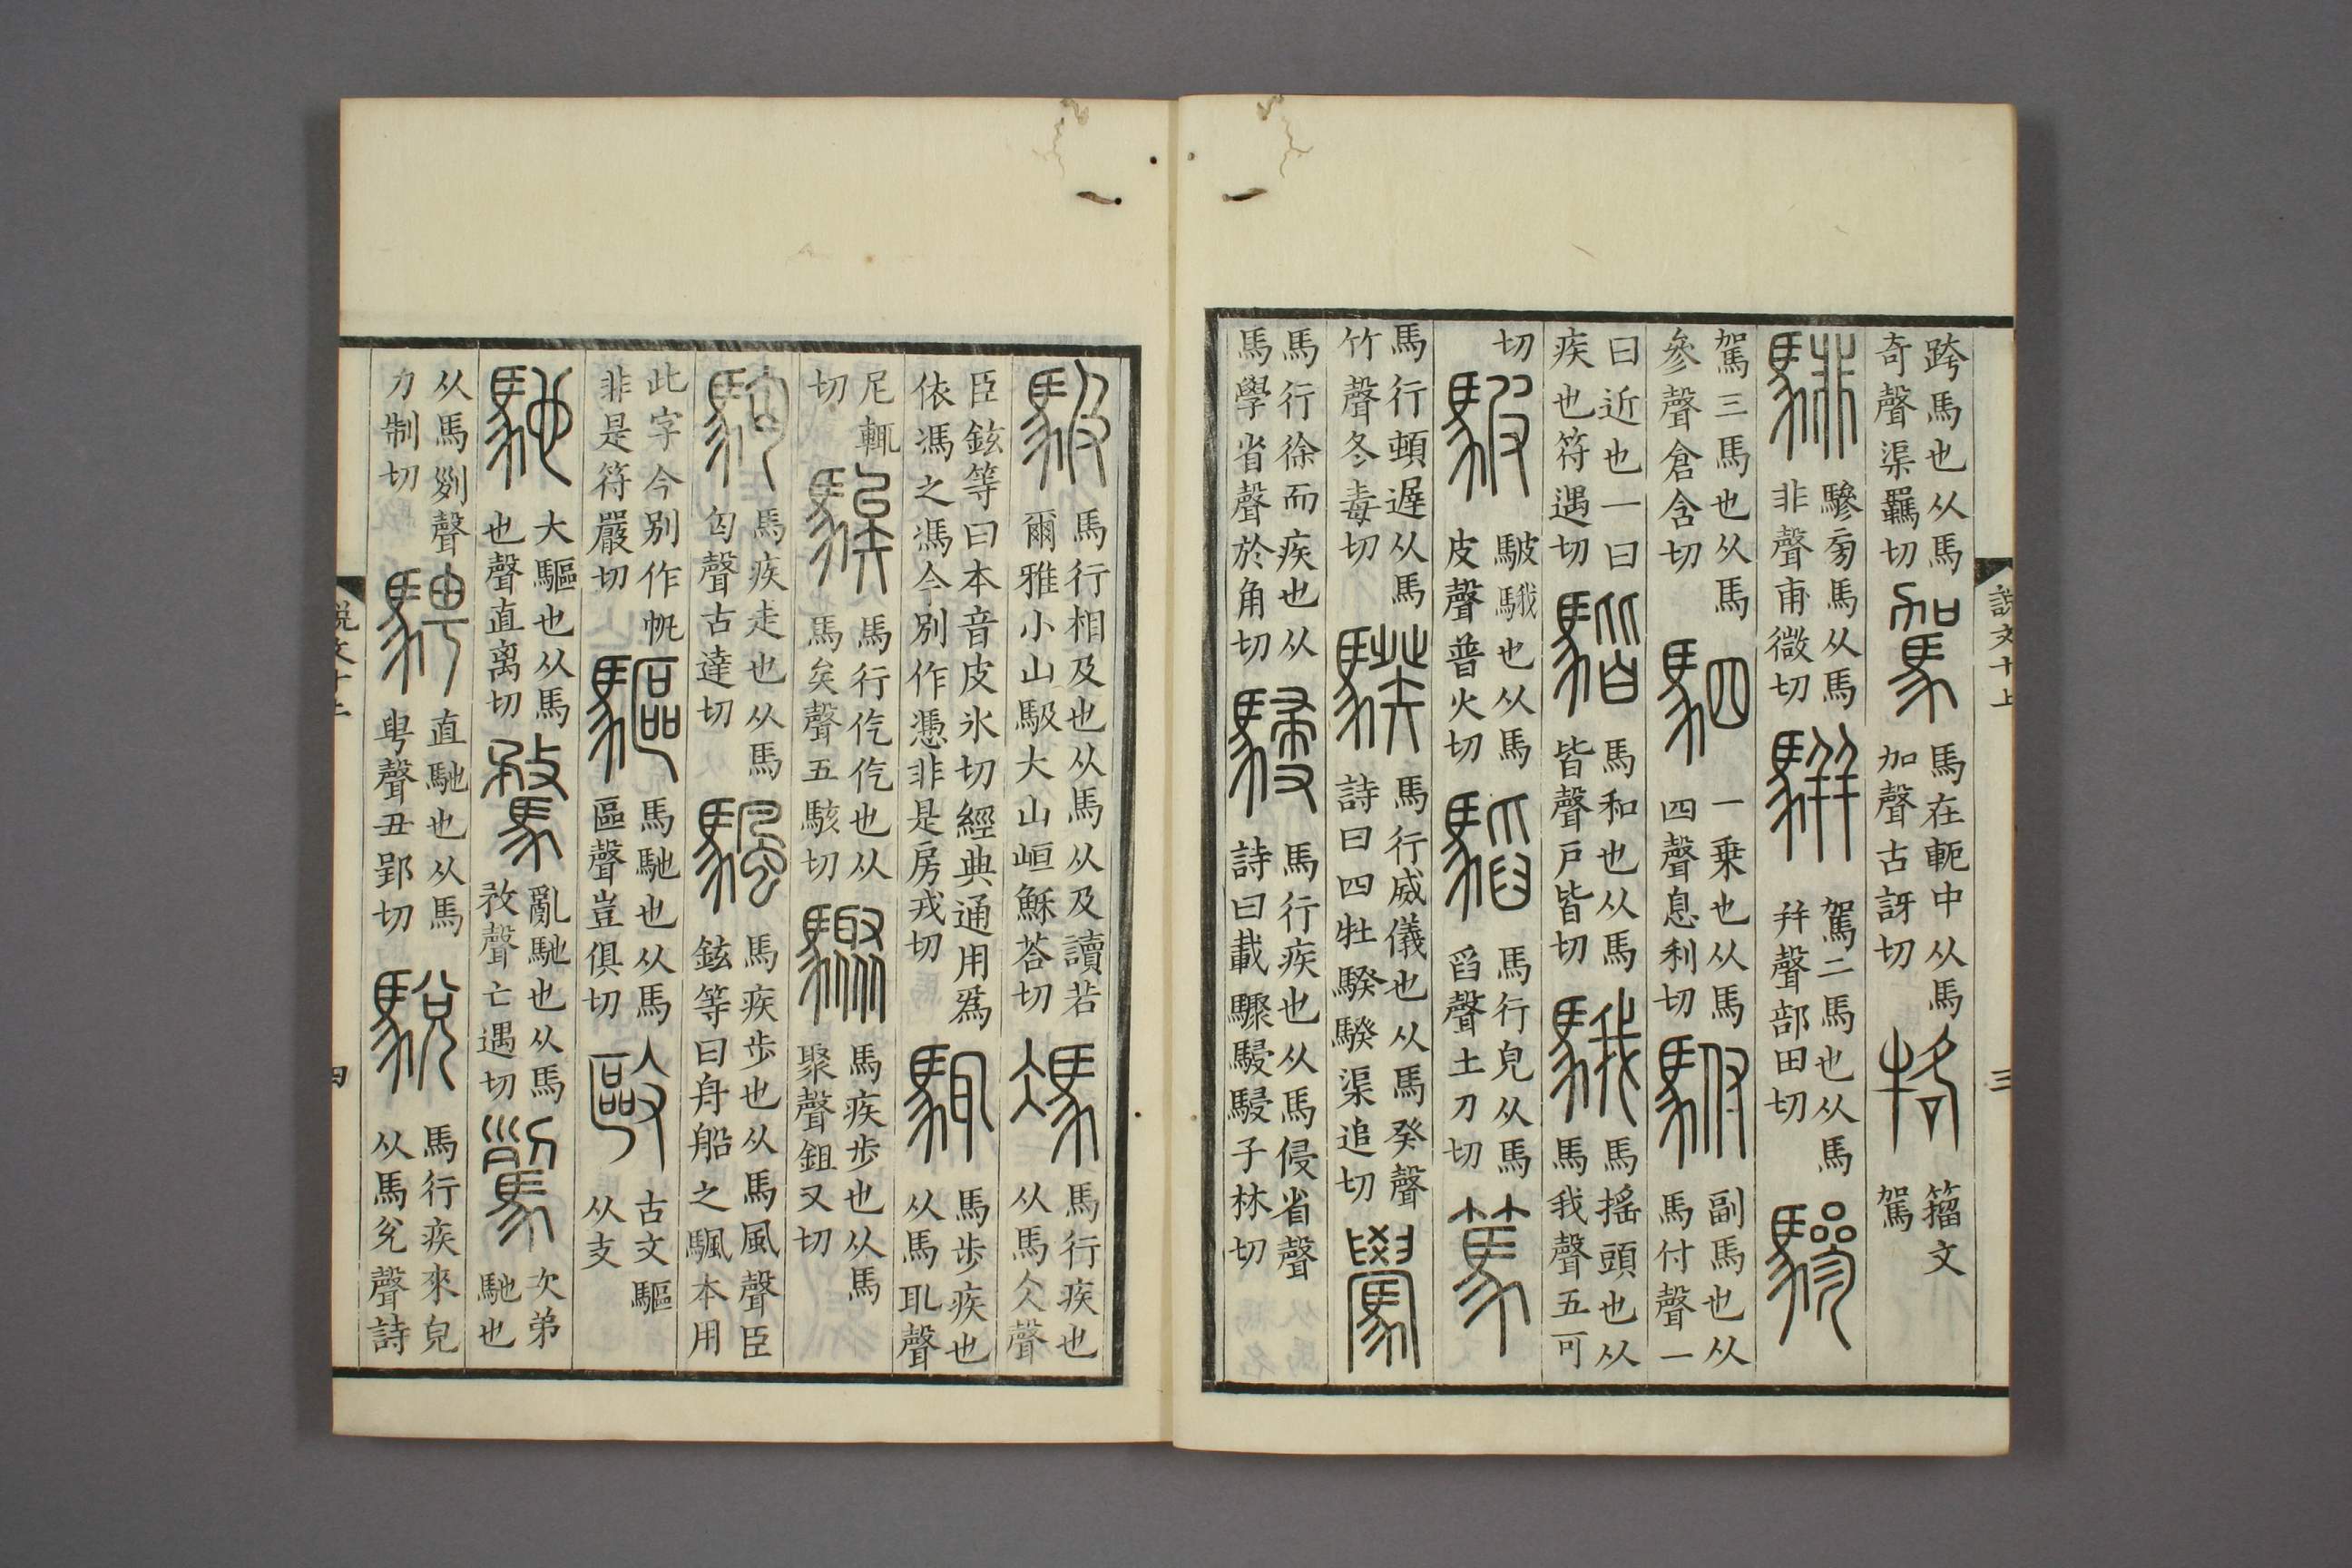 說文十上 三
跨馬也从馬奇聲渠羈切 駕 馬在軛中从馬加聲古訝切 籒文駕
騑 驂㫄馬从馬非聲甫微切 騈 駕二馬也从馬幷聲部田切 驂
駕三馬也从馬參聲倉含切 駟 一乗也从馬四聲息利切 駙 副馬也从馬付聲一
曰近也一曰疾也符遇切 馬和也从馬皆聲戸皆切 騀 馬搖頭也从馬我聲五可
切 駊 駊騀也从馬皮聲普火切 馬行皃从馬舀聲土刀切 篤
馬行頓遲从馬竹聲冬毒切 騤 馬行威儀也从馬癸聲詩曰四牡騤騤渠追切 䮸
馬行徐而疾也从馬學省聲於角切 駸 馬行疾也从馬侵省聲詩曰載驟駸駸子林切
馺 馬行相及也从馬从及讀若爾雅小山馺大山峘穌荅切 馮 馬行疾也从馬仌聲
臣鉉等曰本音皮冰切經典通用爲依馮之馮今別作憑非是房戎切 馬步疾也从馬耴聲
尼輒切 騃 馬行仡仡也从馬矣聲五駭切 驟 馬疾步也从馬聚聲鉏又切
馬疾走也从馬匃聲古達切 颿 馬疾步也从馬風聲臣鉉等曰舟船之颿本用
此字今别作帆非是符嚴切 驅 馬馳也从馬區聲豈俱切 敺 古文驅从攴
馳 大驅也从馬也聲直离切 騖 亂馳也从馬敄聲亡遇切 次弟馳也
从馬𠛱聲力制切 騁 直馳也从馬甹聲丑郢切 駾 馬行疾來皃从馬兌聲詩
說文十上 四